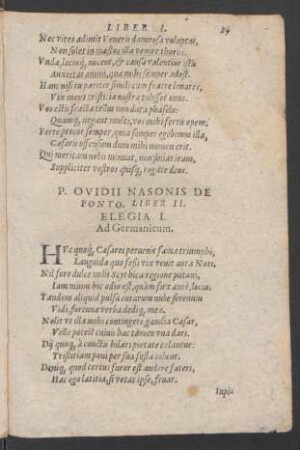 LIBER I. 29
Nec vires adimit Veneris damnosa voluptas,
Non solet in mæstos illa venire thoros.
Vnda, locusq; nocent, & causa valentior istis
Anxietas animi, quæ mihi semper adest.
Hanc nisi tu pariter simili cum fratre levares,
Vix mens tristitiæ nostra tulisset onus.
Vos estis fracto tellus non dura phaselo:
Quamq; negant multi, vos mihi fertis opem.
Ferte precor semper, quia semper egebimus illa,
Cæsaris offensum dum mihi numen erit.
Qui meritam nobis minuat, non finiat iram,
Suppliciter vestros quisq; rogate deos.
P. OVIDII NASONIS DE
PONTO. LIBER II.
ELEGIA I.
Ad Germanicum.
HVc quoq; Cæsarei pervenit fama triumphi,
Languida quo fessi vix venit aura Noti.
Nil fore dulce mihi Scythica regione putavi,
Iam minus hic odio est, quàm fuit antè, locus.
Tandem aliquid pulsa curarum nube serenum
Vidi, fortunæ verba dedíq; meæ.
Nolit ut ulla mihi contingere gaudia Cæsar,
Velle potest cuivis hæc tamen una dari.
Dij quoq; à cunctis hilari pietate colantur:
Tristitiam poni per sua festa iubent.
Deniq; quod certus furor est audere fateri,
Hac ego lætitia, si vetet ipse, fruar.
Iupi-